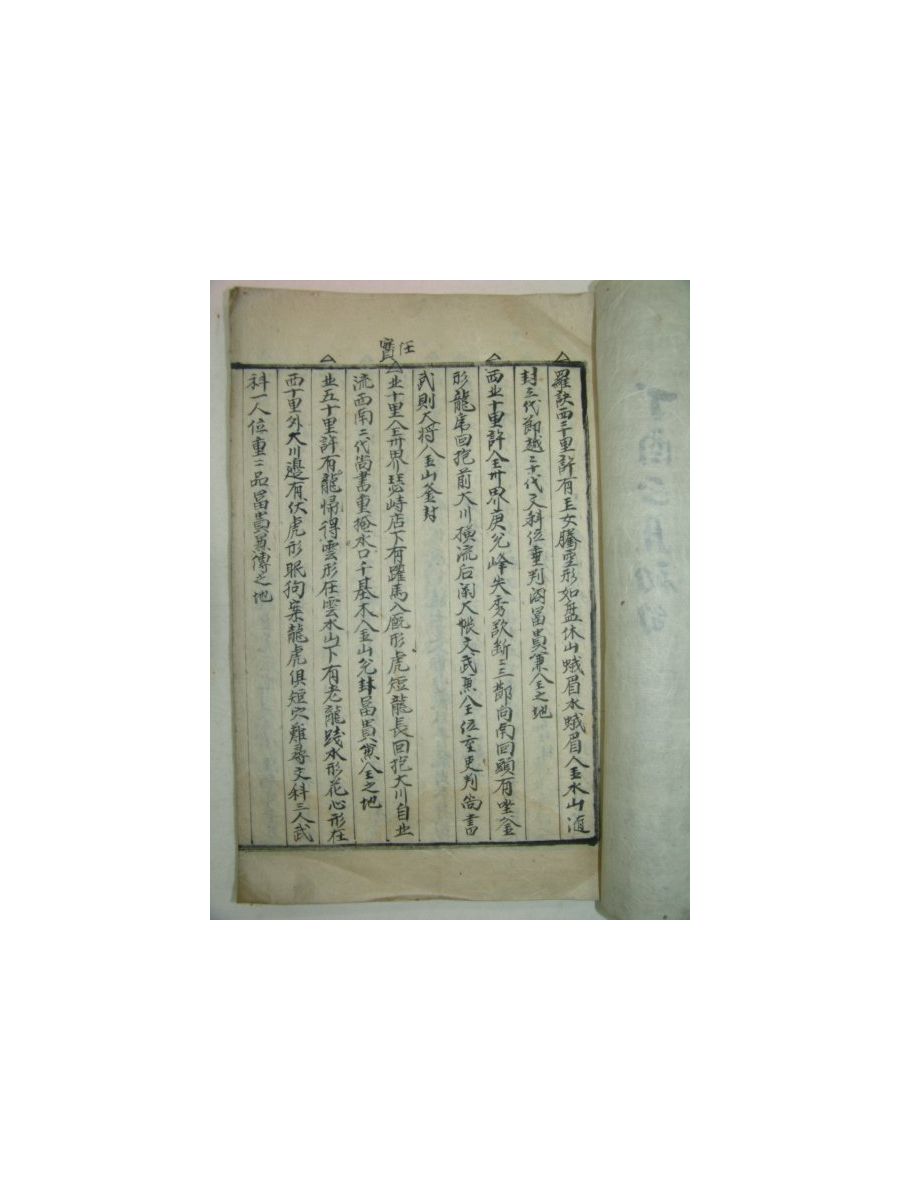 任實
羅 西二里許有玉女騰空形如盤休山蛾眉水蛾眉八金水山
封三代節越二十代文科位重判 富貴兼全之地
西北十里許全州界庚兌峰尖秀欲斷二三節向南回頭有坐釜
形龍虎回抱前大川橫流后開大帳文武兼全位至吏判尚書
武則大將八金山釜封
北十里全州界瑟峙店下有躍馬入厩形虎短龍長回抱大川自北
流西南二代尚書重掩水口千基木入金山兌封富貴兼全之地
北五十里許有龍歸得雲形在雲水山下有老龍踐水形花心形在
西十里外大川邊有伏虎形眠狗案龍虎俱短穴難尋文科三人武
科一人位重二品富貴兼傳之地